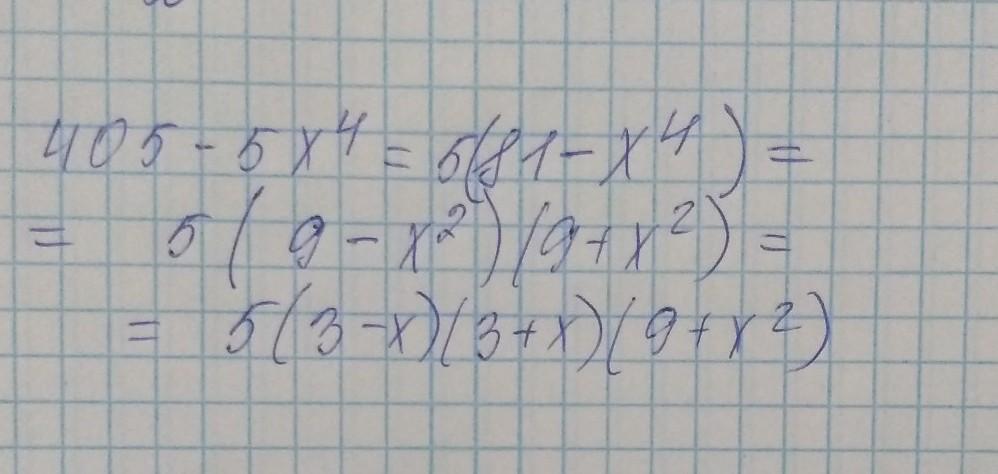 405 - 5x⁴ = 5(81 - x⁴) =
= 5(9 - x²)(9 + x²) =
= 5(3 - x)(3 + x)(9 + x²)